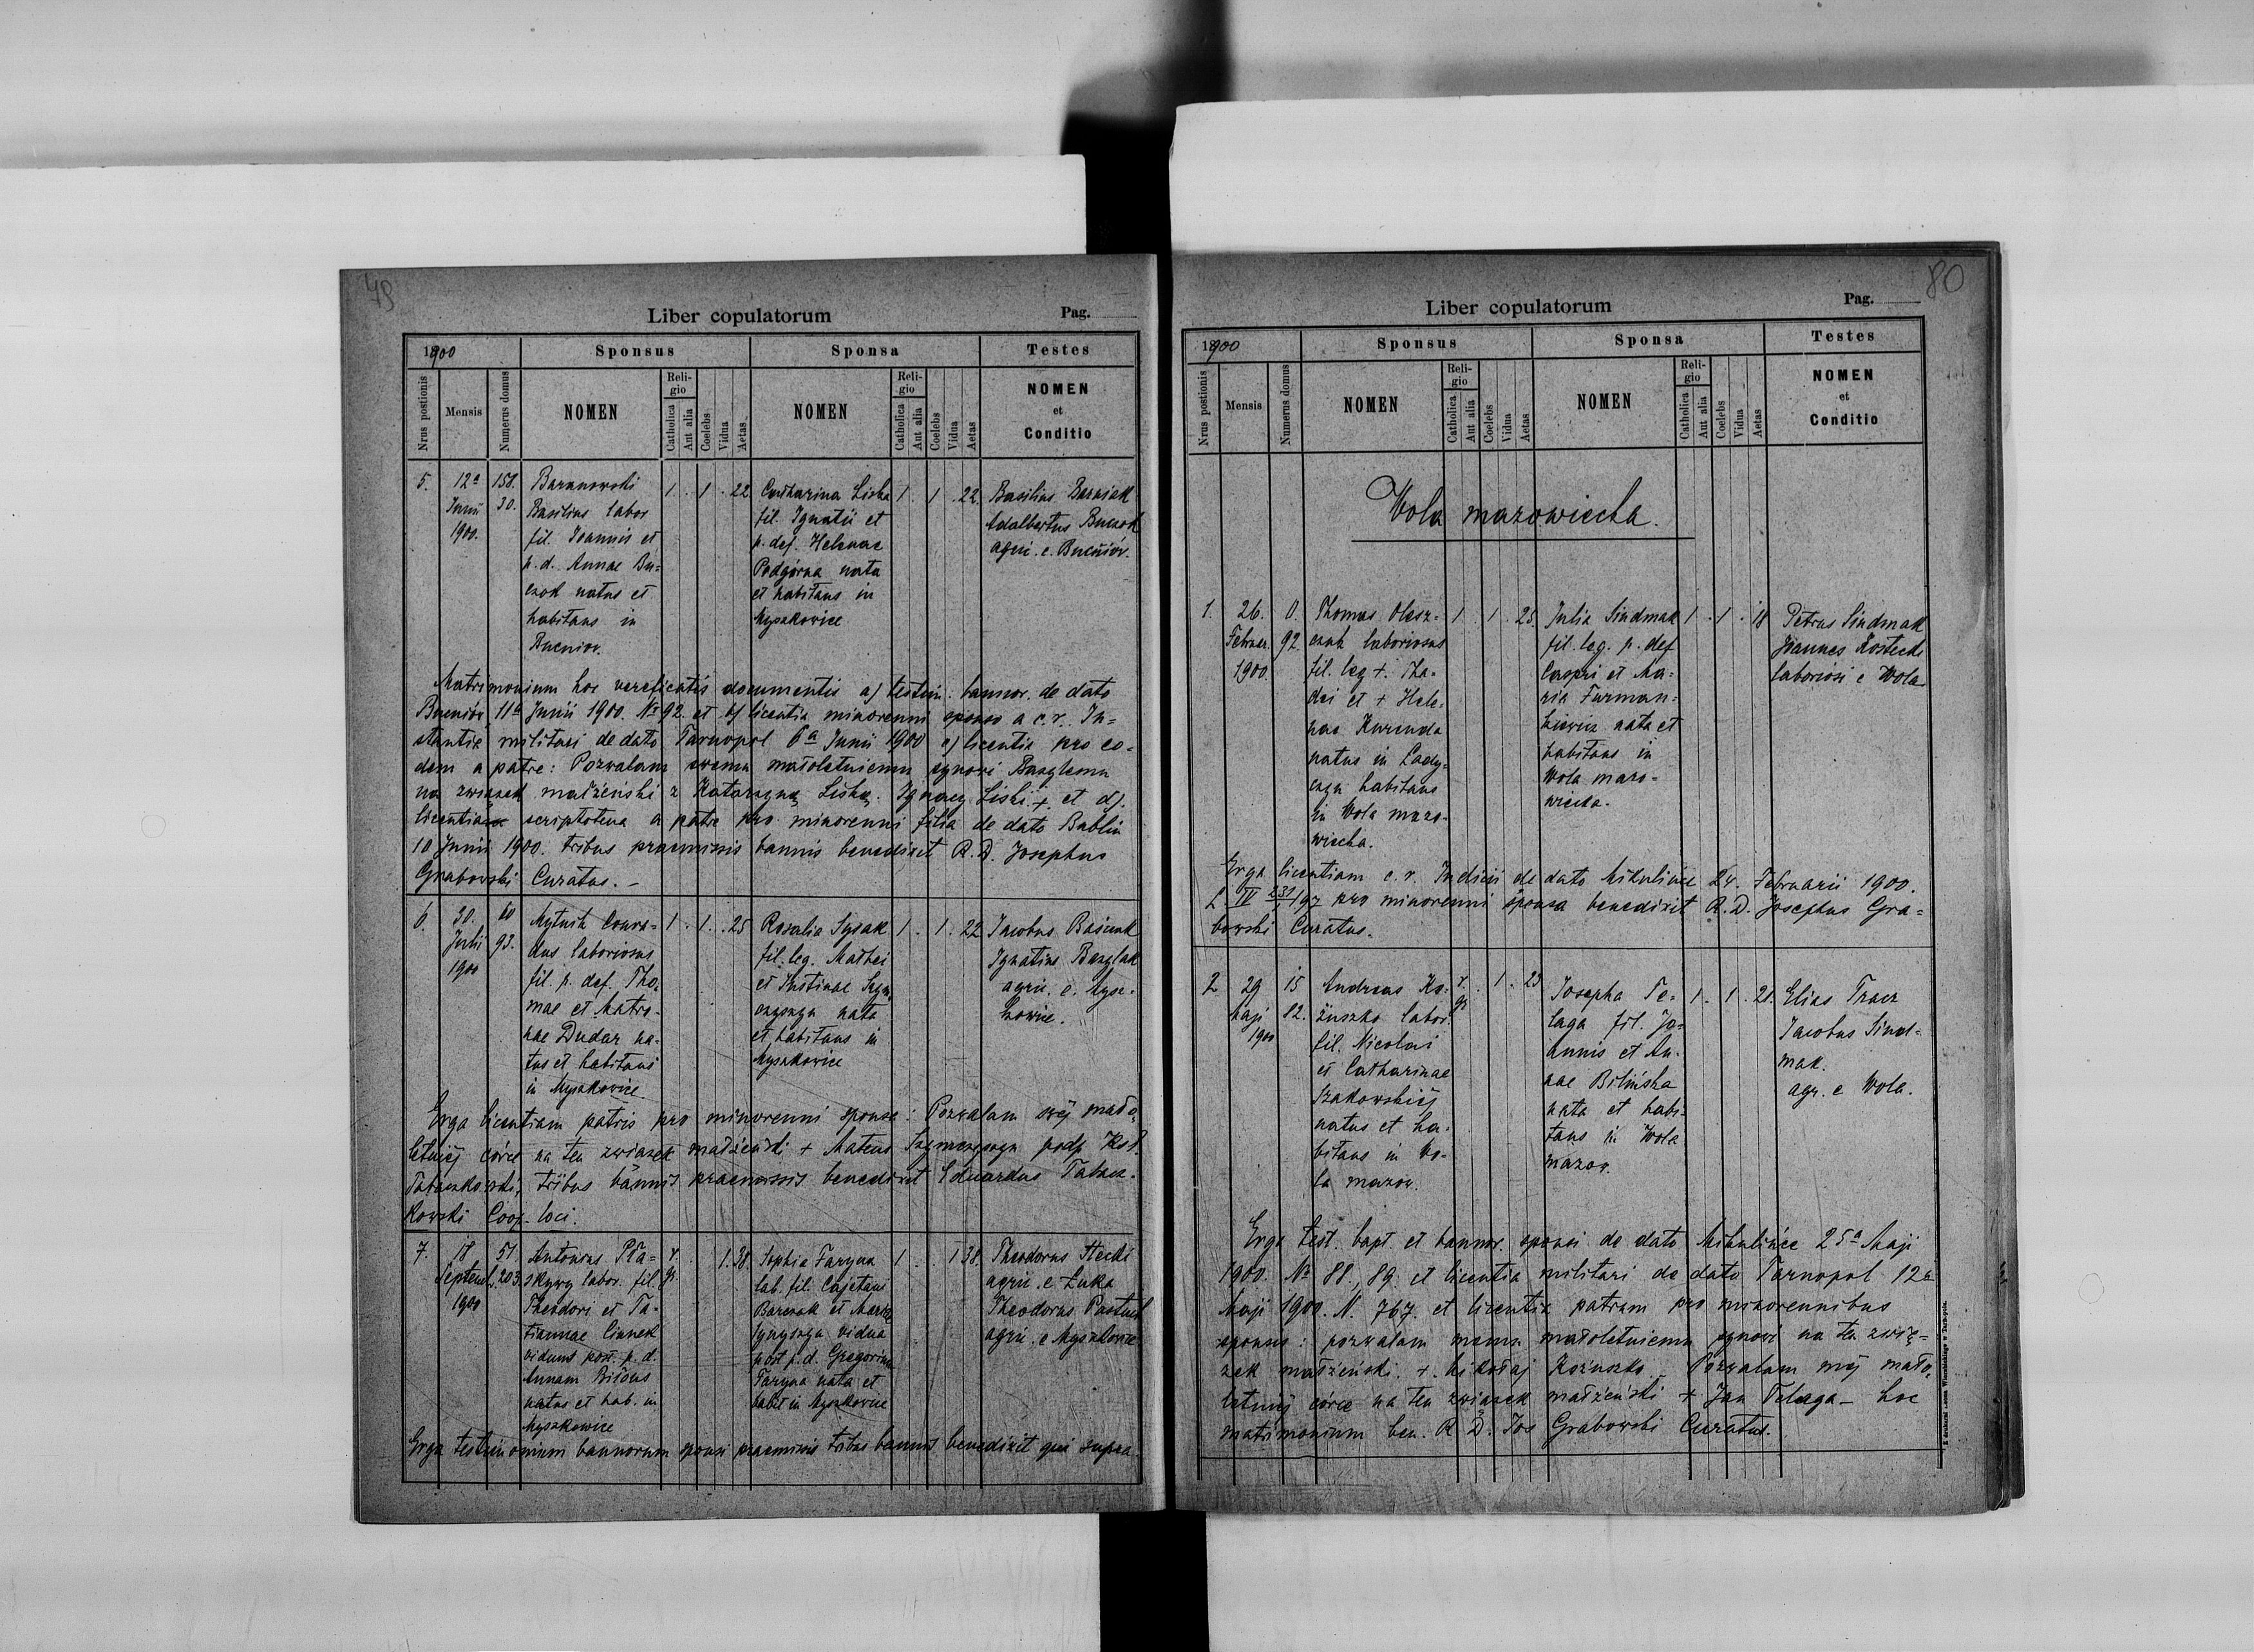 49
Liber copulatorum
Pag.
1900
Sponsus
Sponsa
Testes
Nrus postionis
Mensis
Numerus domus
NOMEN
Religio
Catholica
Aut alia
Coelebs
Vidua
Aetas
NOMEN
Religio
Catholica
Aut alia
Coelebs
Vidua
Aetas
NOMEN
et
Conditio
5.
12a
Junii
1900.
158.
30.
Baranowski
Basilius labor
fil. Joannis et
p. d. Annae Bu=
czok natus et
habitans in
Bucniov.
1 . 1 . 22
Catharina Liska
fil. Ignatii et
p. def. Helenae
Podgórna nata
et habitans in
Myszkowice
1 . 1 . 22
Basilius Barniak
Adalbertus Buczok
agri. e. Bucniów.
Matrimonium hoc verificatis documentis a) testim. bannor. de dato
Bucniów 11a Junii 1900. No 92. et b) licentia minorenni sponso a c. r. In=
stantia militari de dato Tarnopol 6a Junii 1900 c) licentia pro eo=
dem a patre: Pozwalam swemu małoletniemu synowi Bazylemu
na związek małżeński z Katarzyną Liską. Ignacy Liski + et d).
licentia scriptotena a patre pro minorenni filia de dato Bublin
10 Junii 1900. tribus praemissis bannis benedixit R. D. Josephus
Grabowski Curatus. –
6.
30.
Julii
1900
60
93.
Mytnik Conra=
dus laboriosus
fil. p. def. Tho=
mae et Matro=
nae Dudar na=
tus et habitans
in Myszkowice
1 . 1 . . 25
Rosalia Sysak
fil. leg. Mathei
et Justinae
nata
et habitans in
Myszkowice
1 . 1 . 22
Jacobus
Ignatius Bazylak
agric. e. Mysz=
kowice.
Erga licentiam patris pro minorenni sponsa: Pozwalam swéj mało=
letniéj córce na ten związek małżeński + Mateus podp.
Tabaczkowski, tribus bannis praemissis benedixit Eduardus Tabacz=
kowski Coop. loci.
7.
18
Septemb.
1900
51
203.
Antonius Pła=
skyvy labor. fil.
Theodori et Ta=
tiannae
viduus post. p. d.
Annam
natus et hab. in
Myszkowice
r.
gr.
1. 38.
Sophia Faryna
lab. fil. Cajetani
Barczak et Mariae
vidua
post p. d. Gregorium
Faryna nata et
habit in Myszkowice
1 . . 1 38.
Theodorus Stecki
agric. e Łuka
Theodorus Pastuch
agric. e Myszkowice
Erga testimonium bannorum sponsi praemissis tribus bannis benedixit qui supra.
80
Liber copulatorum
Pag.
1900
Sponsus
Sponsa
Testes
Nrus postionis
Mensis
Numerus domus
NOMEN
Religio
Catholica
Aut alia
Coelebs
Vidua
Aetas
NOMEN
Religio
Catholica
Aut alia
Coelebs
Vidua
Aetas
NOMEN
et
Conditio
Wola mazowiecka.
1.
26.
Februar.
1900.
0.
92.
Thomas Olesz=
czuk laboriosus
fil. leg +. Tha=
dei et + Hele=
nae Kurenda
natus in Łady=
czyn habitans
in Wola mazo=
wiecka.
1 . 1 . 25.
Julia Sindmak
fil. leg. p. def
Caspri et Ma=
ria Furman=
kiewicz nata et
habitans in
Wola mazo=
wiecka.
1 . 1 . 18
Petrus Sindmak
Joannes Kostecki
laboriosi e Wola
Erga licentiam c. r. Judicii de dato Mikulince 24. Februarii 1900.
L IV 231/97 pro minorenni sponsa benedixit R. D. Josephus Gra=
bowski Curatus.
2
29
Maji
1900
15
82.
Andreas Ko=
żuszko labor.
fil. Nicolai
et Catharinae
Szakowskiéj
natus et ha=
bitans in Wo=
la mazow.
r.
gr.
1 . 23
Josepha Te=
laga fil. Jo=
annis et An=
nae Bilińska
nata et habi=
tans in Wola
mazow.
1 . 1 . 20.
Elias Tracz
Jacobus Sind=
mak.
agr. e Wola.
Erga test. bapt. et bannor. sponsi de dato Mikulińce 25a Maji
1900. No 88., 89. et licentia militari de dato Tarnopol 12a
Maji 1900. N. 767. et licentia patrum pro minorennibus
sponsis: pozwalam memu małoletniemu synowi na ten zwią=
zek małżeński. +. Mikołaj Kożuszko. Pozwalam méj mało=
letniéj córce na ten związek małżeński + Jan Telaga – hoc
matrimonium ben. R. D. Jos Grabowski Curatus.
Z drukarni Leona Wierzbickiego w Tarnopolu.